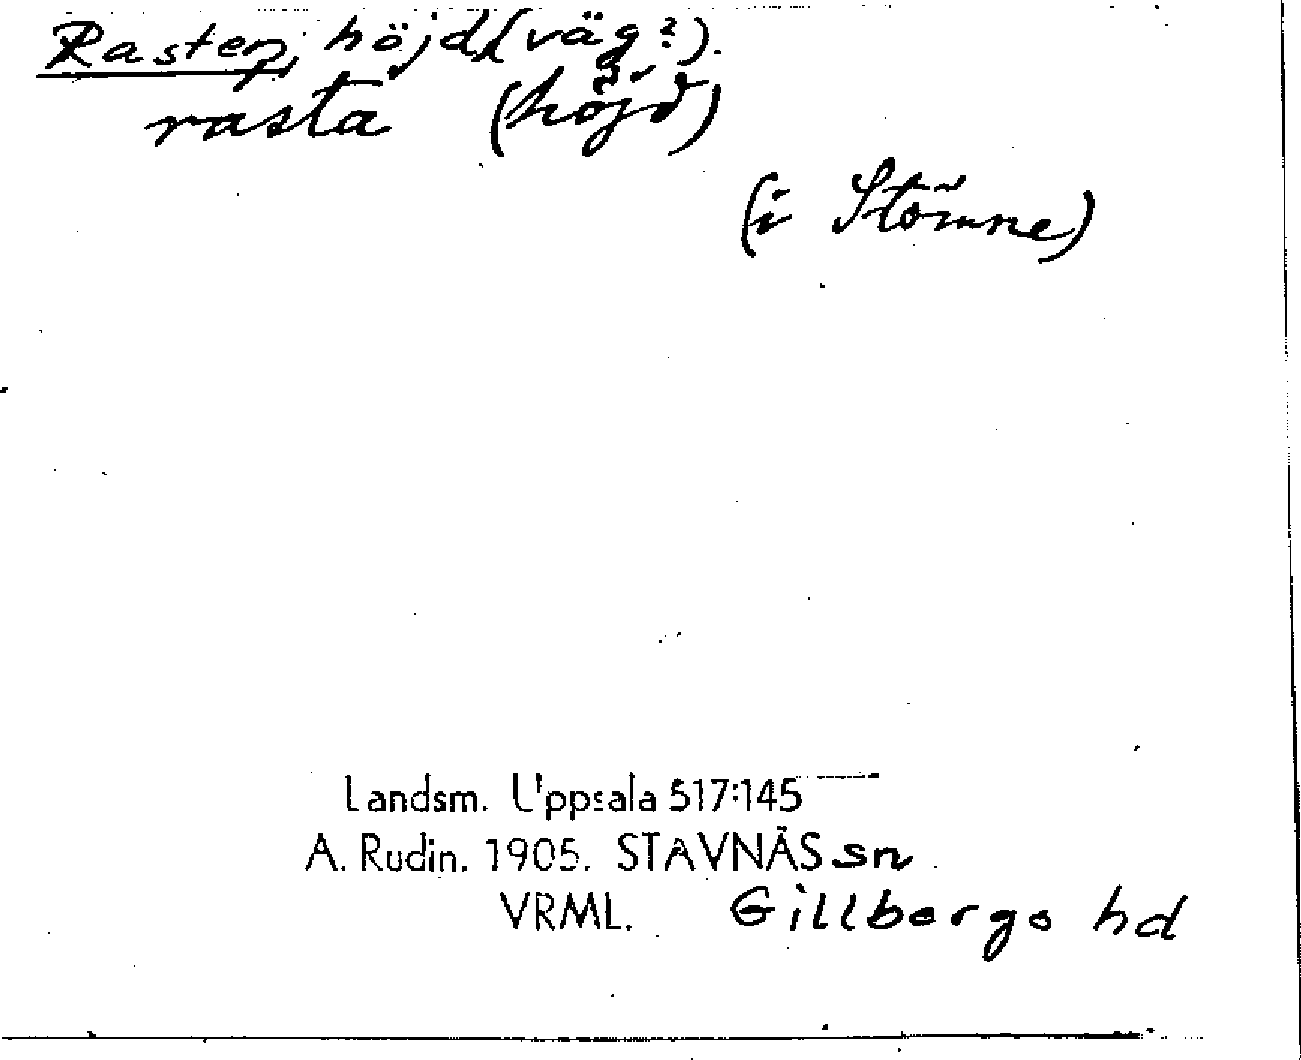 Rasten, höjd (väg?).
rasta (höjd)
(i Stömne)
Landsm. Uppsala 517:145
A. Rudin. 1905. STAVNÄS sn
VRML. Gillbergs hd